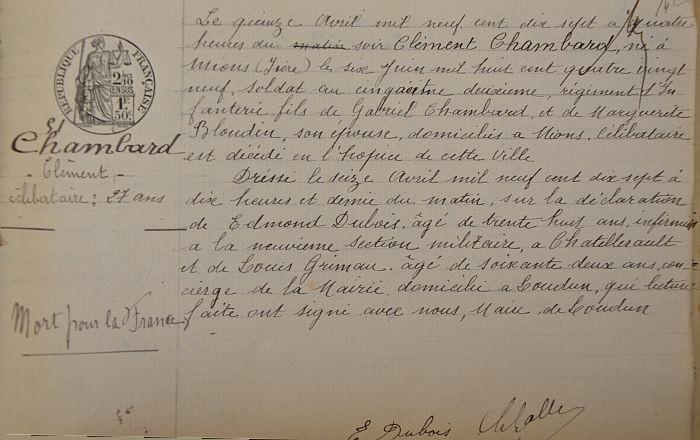 Le quinze Avril mil neuf cent dix sept à quatre
heures du matin soir Clément Chambard, né à
Mions (Isère) le six Juin mil huit cent quatre vingt
neuf, soldat au cinquante deuxième, régiment d'In
fanterie, fils de Gabriel Chambard, et de Marguerite
Blondin, son épouse, domiciliés à Mions. Célibataire
est décédé en l'hospice de cette Ville
Dressé le seize Avril mil neuf cent dix sept à
dix heures et demie du matin, sur la déclaration
de Edmond Dubois, âgé de trente huit ans, infirmier
a la neuvième section militaire, a Chatellerault
et de Louis Grimau, âgé de soixante deux ans, con
cierge de la Mairie, domicilié a Loudun, qui lecture
faite ont signé avec nous, Maire de Loudun
E Dubois
RÉPUBLIQUE FRANÇAISE
2 10
EN SUS
1F
50c
Chambard
- Clément -
célibataire: 27 ans
Mort pour la France